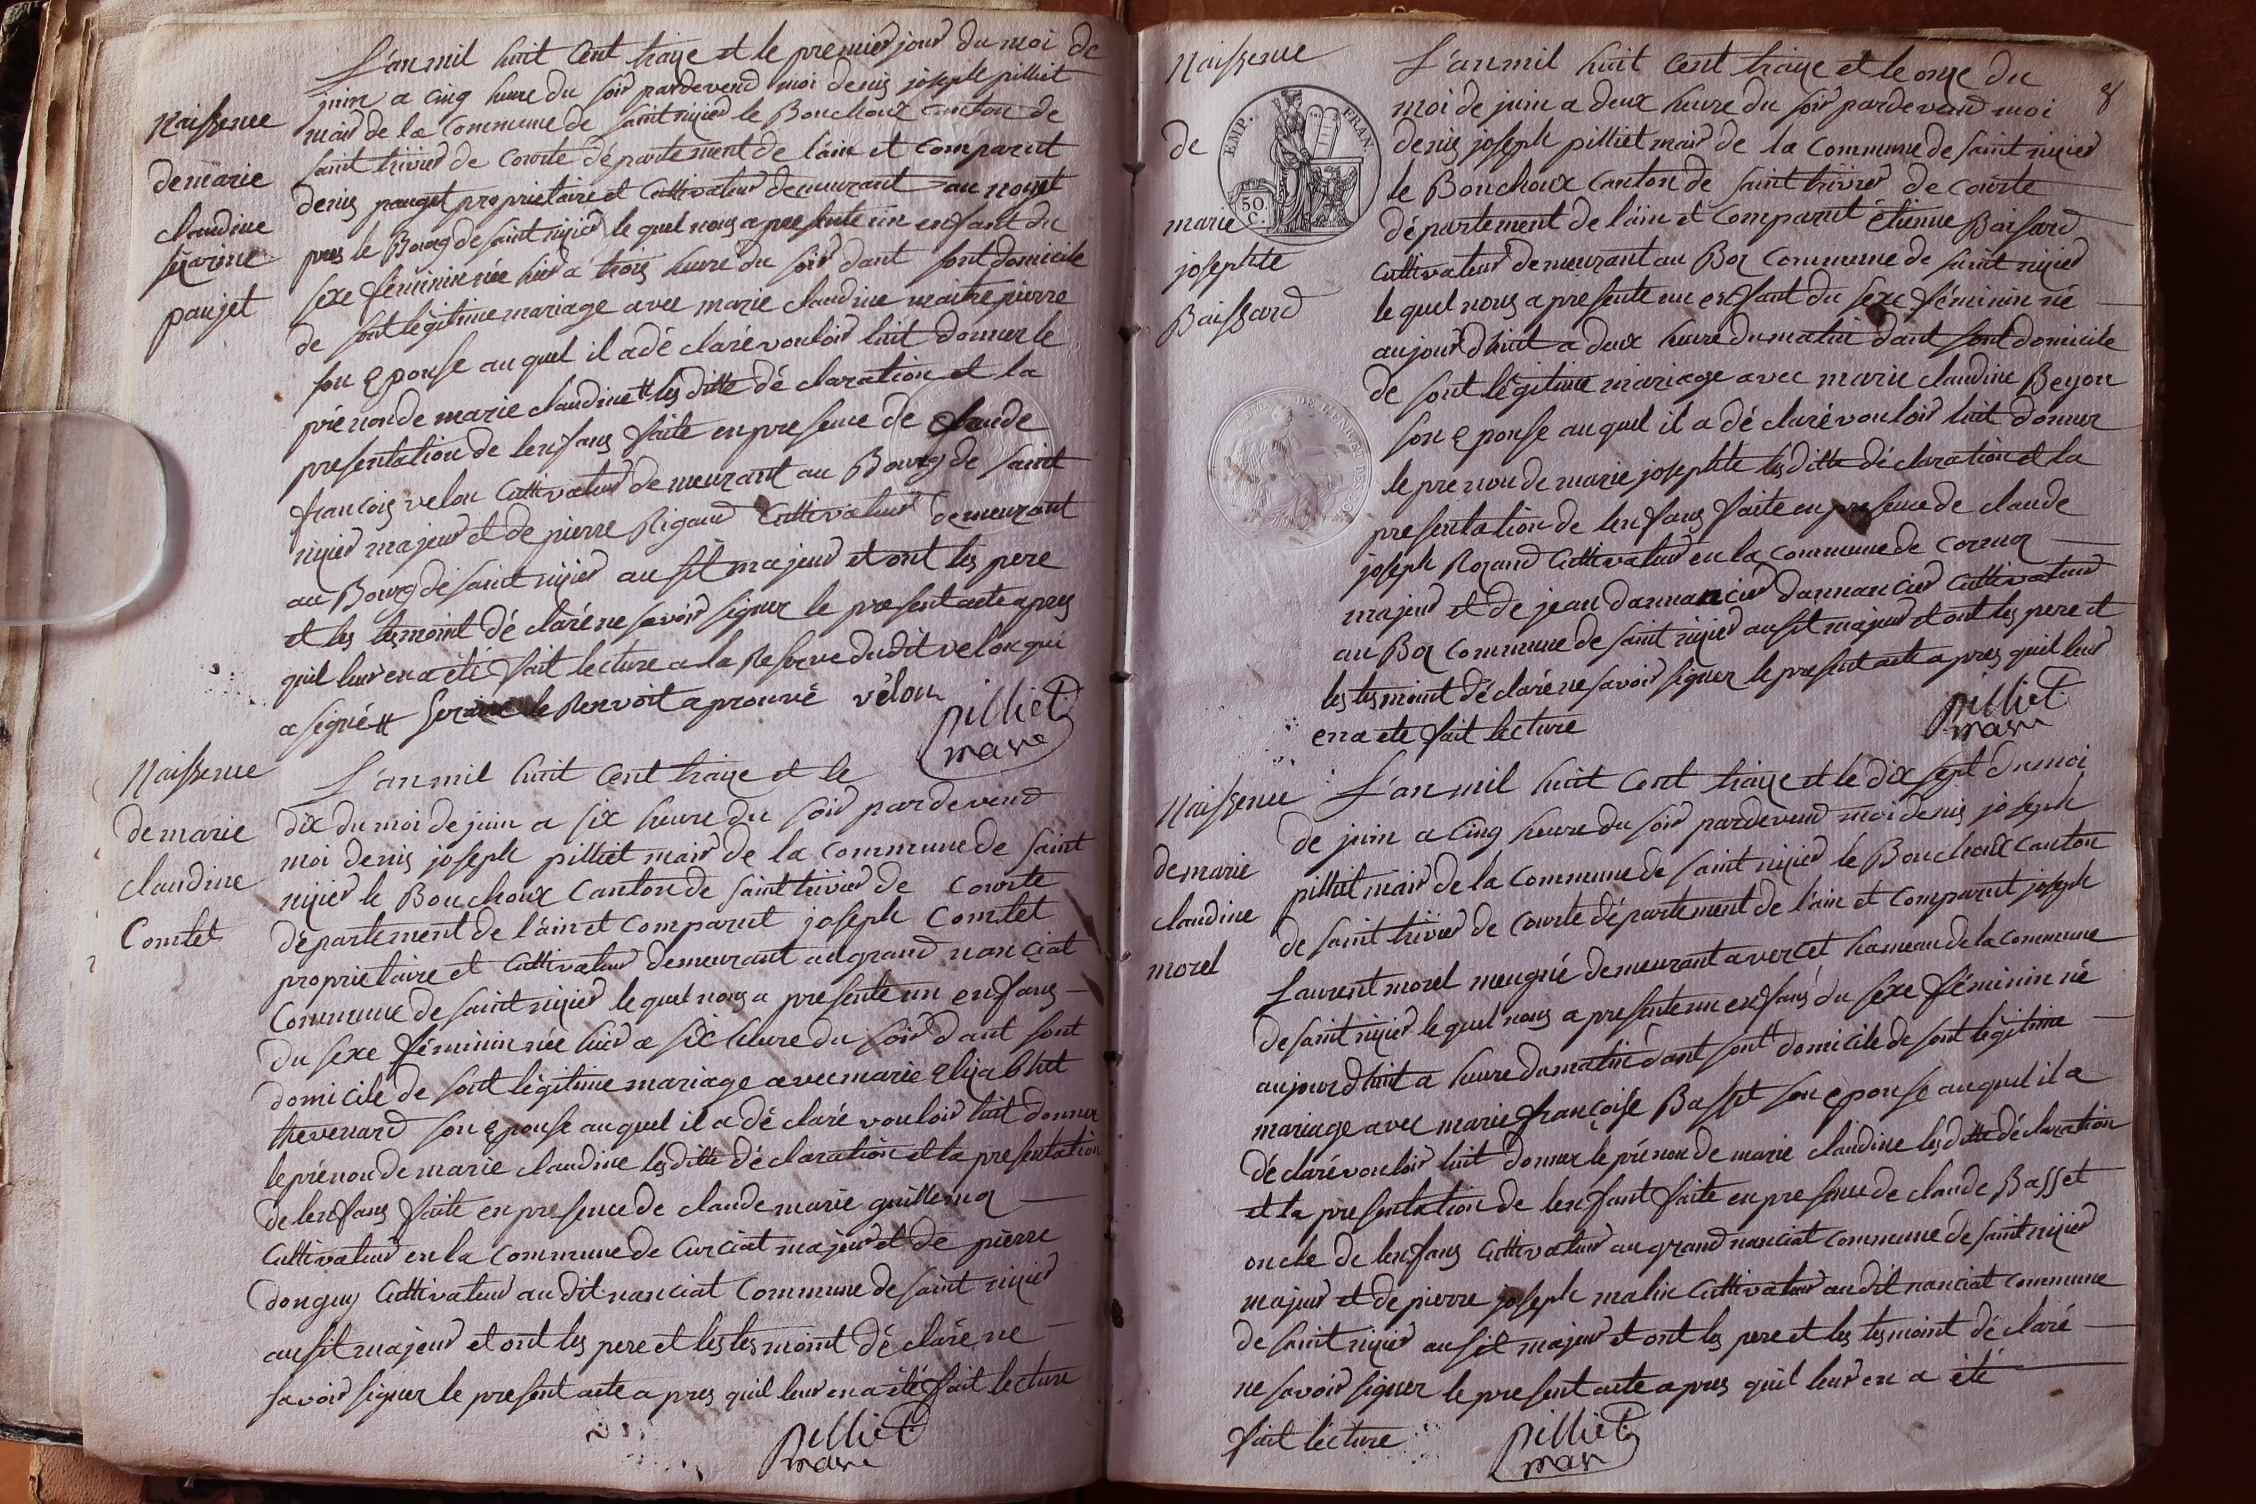 L'an mil huit Cent traize et le premier jour du moi de
juin a cinq heure du soir pardevend moi denis joseph pilliet
mair de la Commune de saint nizier le Bouchoux Canton de
saint trivier de Courte département de l'ain et Comparut
denis paujet proprietaire et Cultivateur demeurant au
pres le Bourg de saint nizier le quel nous a presente un enfant du
sexe féminin née hier a trois heure du soir dant sont domicile
de sont légitime mariage avec marie claudine maitrepierre
son epouse au quel il a dé claré vouloir luit donner le
prénon de marie claudine # les ditte dé claration et la
presentation de lenfans faite en presence de Claude
francois velon Cultivateur demeurant au Bourg de saint
nizier majeur et de pierre Rigaud Cultivateur demeurant
au Bourg de saint nizier ausit majeur et ont les pere
et les tesmoint dé claré ne savoir signer le present acte apres
quil leur en a été fait lecture a la Reserve dudit velon qui
a signé # le Renvoit aprouvé velon
pilliet
mare
Naissence
de marie
claudine
paujet
Naissence
de marie
claudine
Comtet
L'an mil huit Cent traize et le
dix du moi de juin a six heure du soir pardevend
moi denis joseph pilliet mair de la Commune de saint
nizier le Bouchoux Canton de saint trivier de Courte
département de l'ain et Comparut joseph Comtet
proprietaire et Cultivateur demeurant au grand nanciat
Commune de saint nizier le quel nous a presente un enfans
du sexe féminin née hier a six heure du soir dant sont
domicile de sont légitime mariage avec marie elizabhet
thevenard son epouse au quel il a dé claré vouloir luit donner
le prénon de marie claudine les ditte dé claration et la presentation
de lenfans faite en presence de claude marie guilleminq
Cultivateur en la Commune de Curciat majeur et de pierre
donguy Cultivateur au dit nanciat Commune de saint nizier
ausit majeur et ont les pere et les tesmoint dé claré ne
savoir signer le present acte apres quil leur en a été fait lecture
pilliet
mare
Naissence
de
marie
josephte
Baissard
EMP. FRAN.
50 C.
8
L'an mil huit Cent traize et le onze du
moi de juin a deux heure du soir pardevend moi
denis joseph pilliet mair de la Commune de saint nizier
le Bouchoux Canton de saint trivier de Courte
département de l'ain et Comparut étienne Baissard
Cultivateur demeurant au Boz Commune de saint nizier
le quel nous a presente un enfant du sexe féminin né
aujourdhuit a deux heure du matin dant sont domicile
de sont légitime mariage avec marie claudine Beyon
son epouse au quel il a dé claré vouloir luit donner
le prenon de marie josephte les ditte déclaration et la
presentation de lenfans faite en presence de claude
joseph Rozand Cultivateur en la Commune de Cormoz
majeur et de jean dannancier dannancier Cultivateur
au Boz Commune de saint nizier ausit majeur et ont les pere et
les tesmoint dé claré ne savoir signer le present acte apres quil leur
en a ete fait lecture
pilliet
mare
Naissence
de marie
claudine
morel
L'an mil huit Cent traize et le dix sept du moi
de juin a cinq heure du soir pardevend moi denis joseph
pilliet mair de la Commune de saint nizier le Bouchoux Canton
de saint trivier de Courte département de l'ain et Comparut joseph
Laurent morel meugnié demeurant a vercet hameau de la Commune
de saint nizier le quel nous a presente un enfans du sexe féminin né
aujourdhuit a heure du matin dant sont domicile de sont légitime
mariage avec marie françoise Basset son epouse au quel il a
dé claré vouloir luit donner le prénon de marie claudine les ditte déclaration
et la presentation de lenfant faite en presence de claude Basset
oncle de lenfans Cultivateur au grand nanciat Commune de saint nizier
majeur et de pierre joseph malin Cultivateur au dit nanciat Commune
de saint nizier ausit majeur et ont les pere et les tesmoint dé claré
ne savoir signer le present acte apres quil leur en a été
fait lecture
pilliet
mare